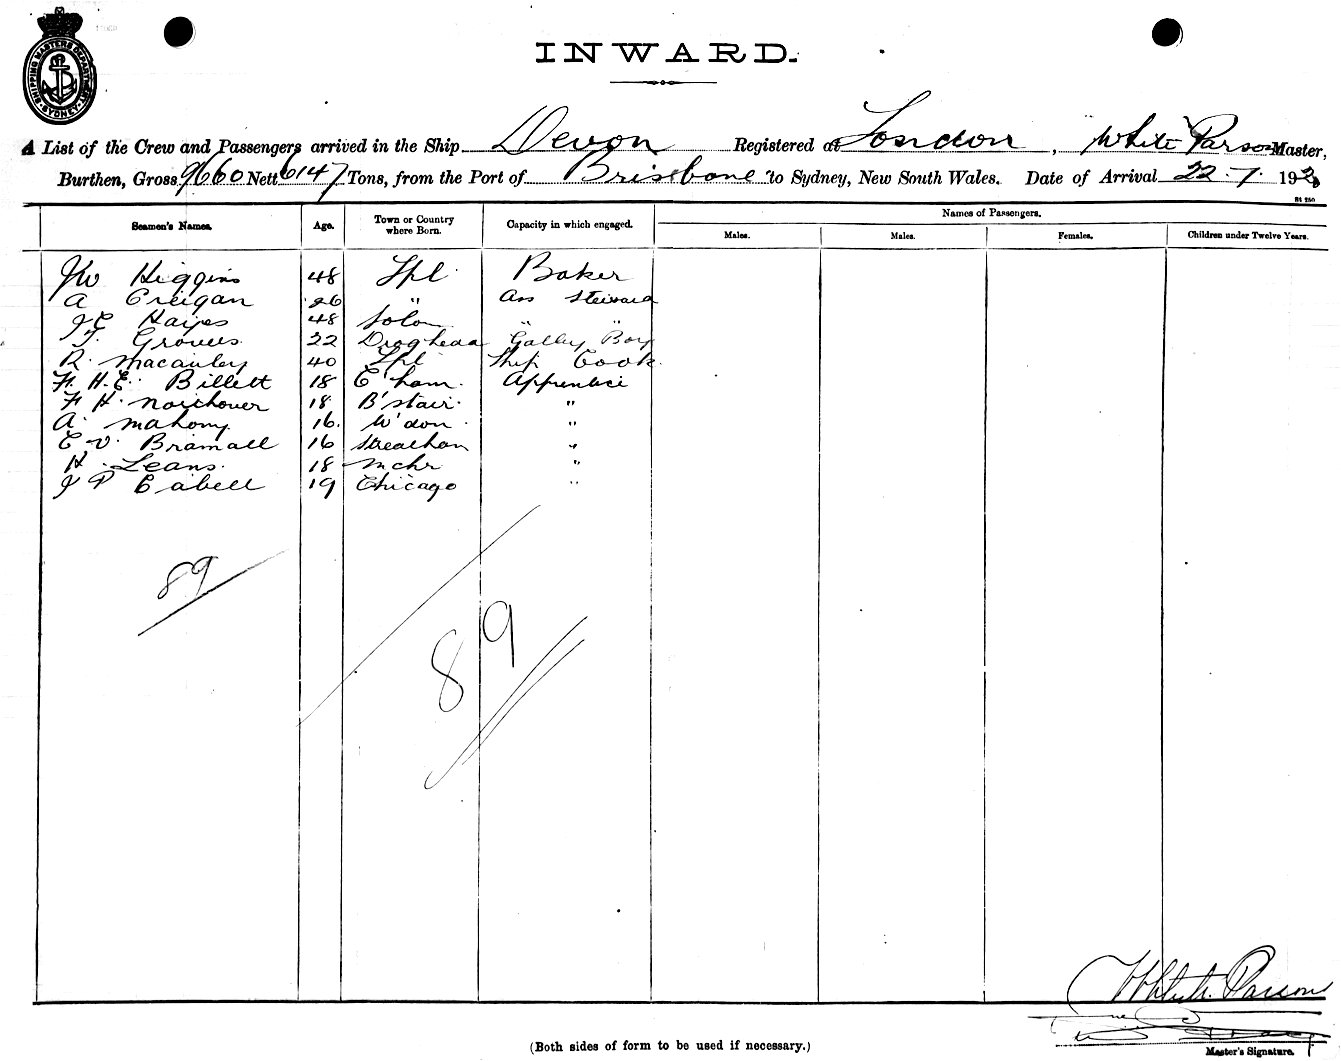 SHIPPING MASTERS DEPARTMENT
SYDNEY
INWARD.
A List of the Crew and Passengers arrived in the Ship Devon Registered at London, White Parson Master,
Burthen, Gross 9660 Nett 6147 Tons, from the Port of Brisbane to Sydney, New South Wales. Date of Arrival 22.7. 192
Seamen's Names. Age. Town or Country where Born. Capacity in which engaged. Names of Passengers.
Males. Males. Females. Children under Twelve Years.
JW Higgins 48 Lpl Baker
A Creigan 26 " Ass Steward
J E Hayes 48 Solon " "
T. Groves 22 Drogheda Galley Boy
R. Macauley 40 Lpl Ship Cook
F. H. E. Billett 18 C'ham. Apprentice
F H. Northover 18 B'stair. "
A. Mahony 16. W'don "
C V. Bramall 16 Streatham "
H. Leans. 18 Mchr "
J P Cabell 19 Chicago "
89
89
White Parson
(Both sides of form to be used if necessary.)
Master's Signature.